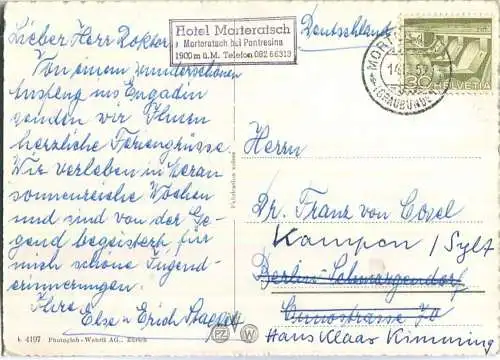 Lieber Herr Doktor
Von einem wunderschönen
Ausflug ins Engadin
senden wir Ihnen
herzliche Feriengrüsse.
Wir verleben in Meran
sonnenreiche Wochen
und sind von der Ge-
gend begeistert für
mich schöne Jugend-
erinnerungen.
Ihre
Else u. Erich
k 4197 Photoglob-Wehrli AG., Zürich
Hotel Morteratsch
Morteratsch bei Pontresina
1900 m ü.M. Telefon 082 66313
Fabrication suisse
PZ W
Deutschland
MOR
(GRAUBÜNDEN)
30 HELVETIA
Herrn
Dr. Franz von
Kampen / Sylt
Berlin-Schmargendorf
Cunostrasse 70
Hans Klaar Kimming